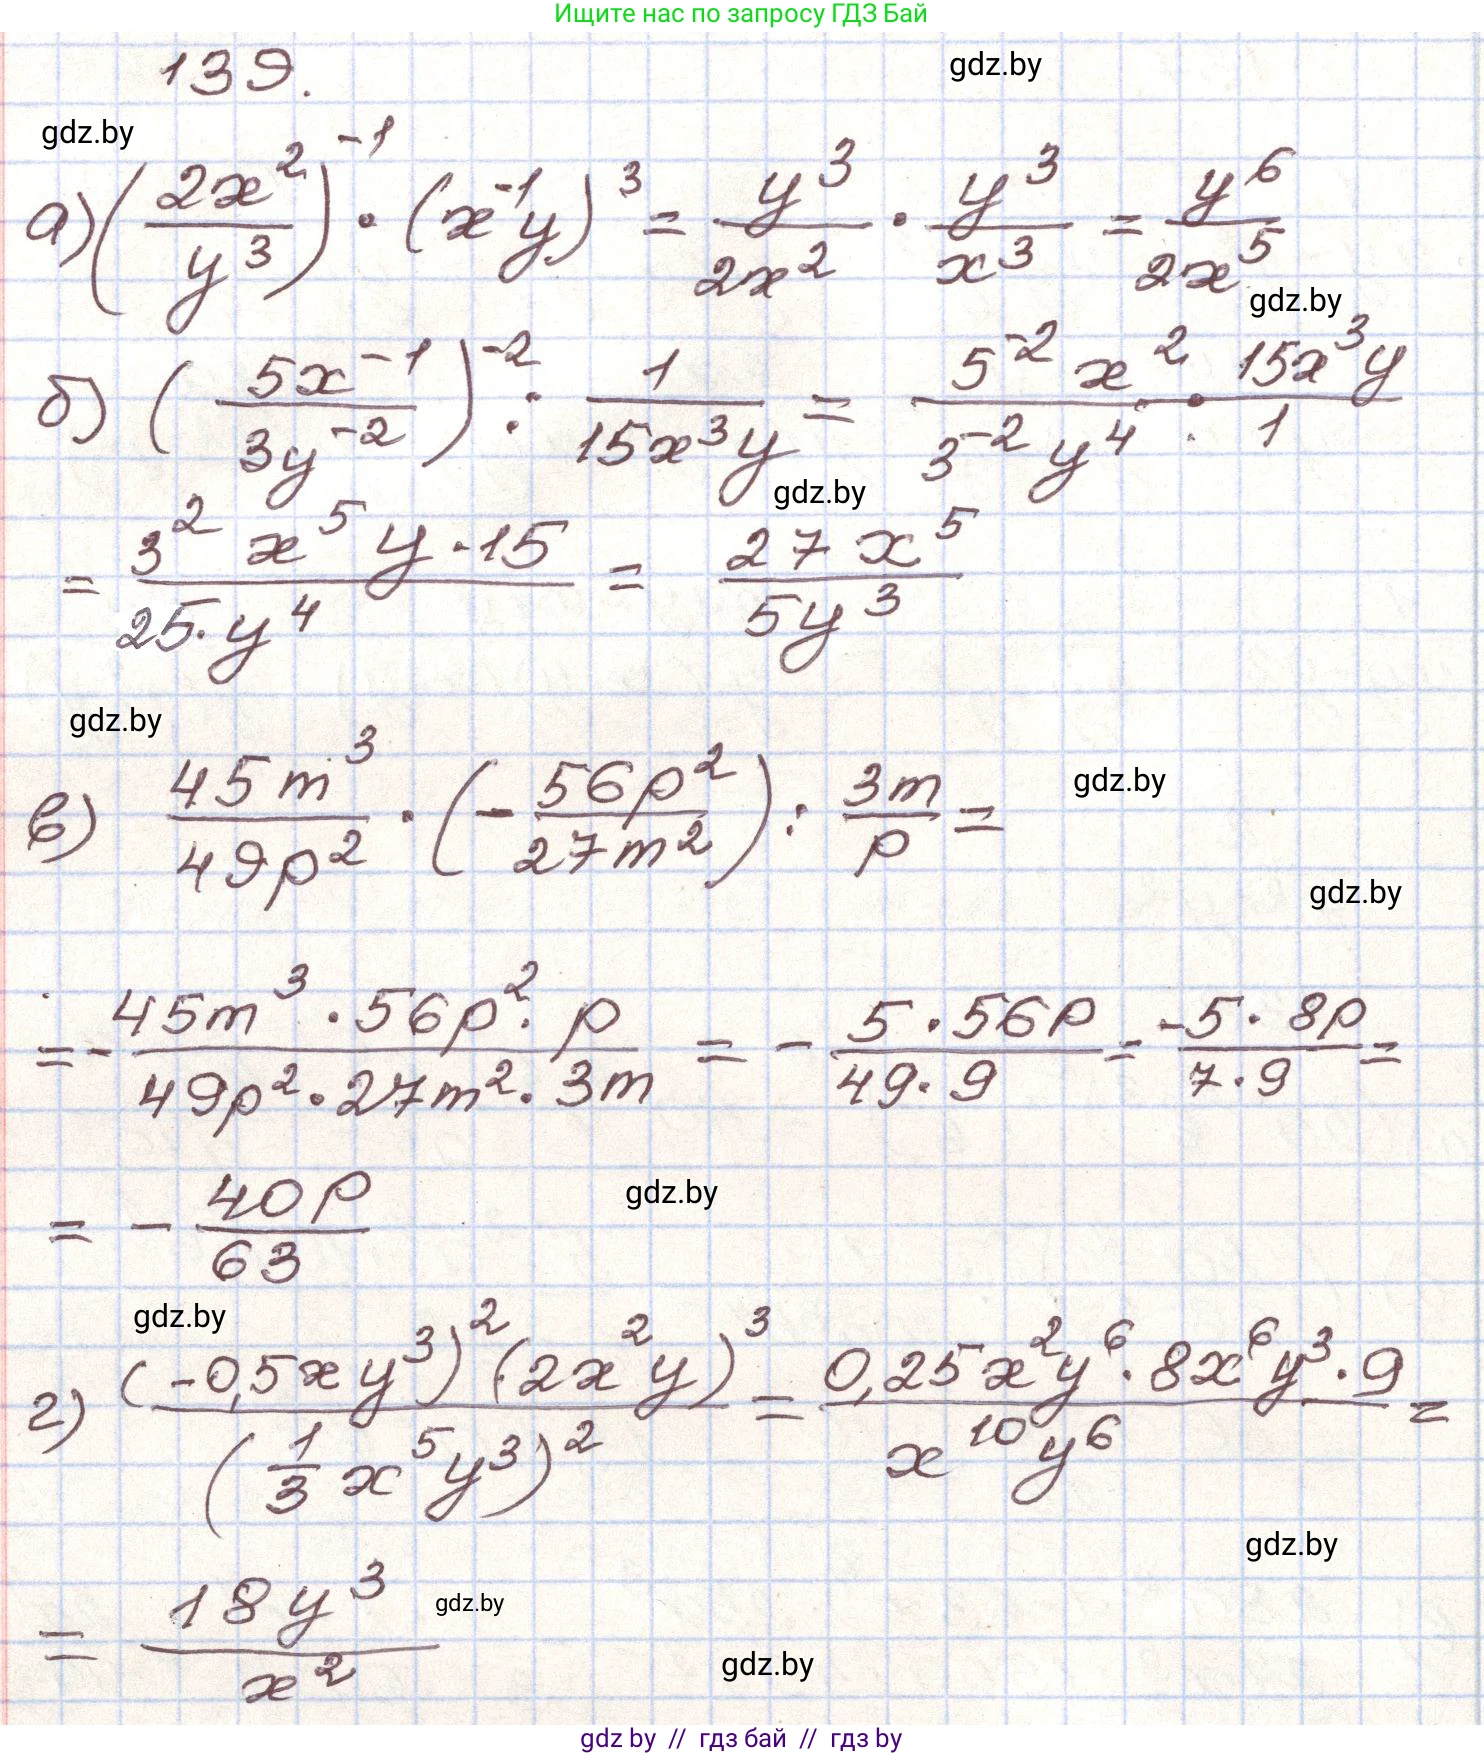 Ищите нас по запросу ГДЗ Бай
139.
gdz.by
gdz.by
а) (2x²/y³)⁻¹ · (x⁻¹y)³ = y³/2x² · y³/x³ = y⁶/2x⁵
gdz.by
б) (5x⁻¹/3y⁻²)⁻² : 1/15x³y = 5⁻²x²/3⁻²y⁴ · 15x³y/1
gdz.by
= 3²x⁵y·15/25·y⁴ = 27x⁵/5y³
gdz.by
в) 45m³/49p² · (-56p²/27m²) : 3m/p =
gdz.by
gdz.by
= - 45m³·56p²·p/49p²·27m²·3m = - 5·56p/49·9 = -5·8p/7·9 =
= - 40p/63
gdz.by
gdz.by
г) (-0,5xy³)²(2x²y)³/(1/3 x⁵y³)² = 0,25x²y⁶·8x⁶y³·9/x¹⁰y⁶ =
gdz.by
= 18y³/x²
gdz.by
gdz.by
gdz by // гдз бай // гдз by